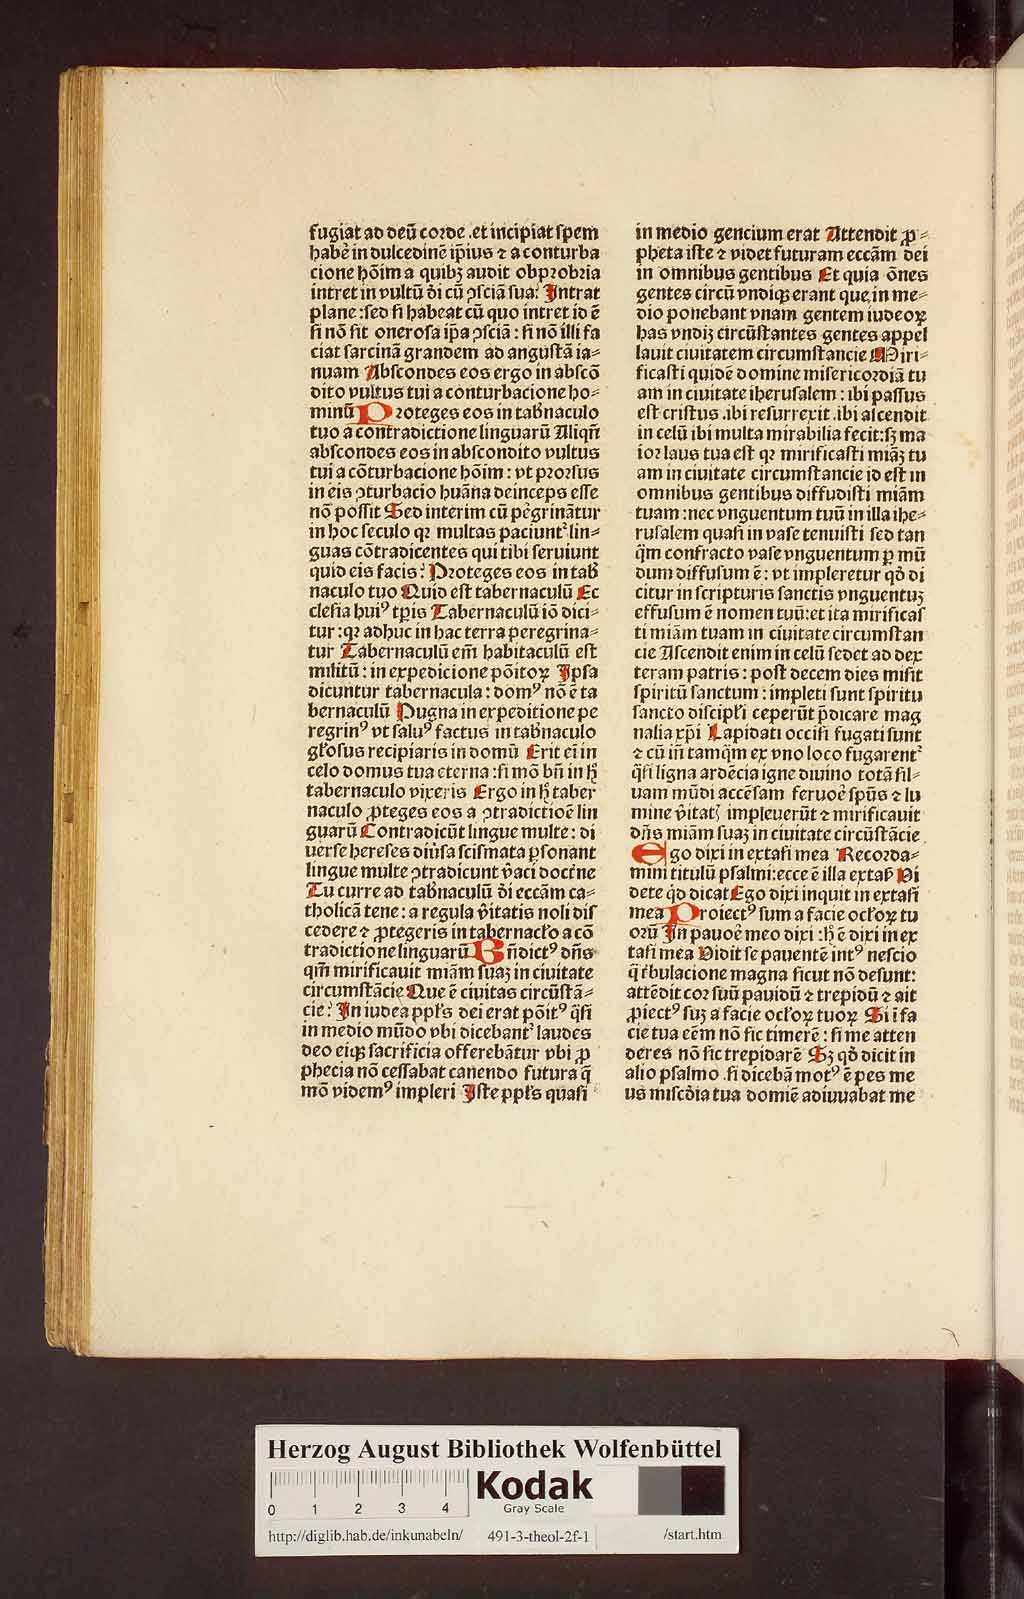 fugiat ad deū corde .et incipiat spem
habē in dulcedinē ip̄ius ⁊ a conturba
cione hōim a quibꝫ audit obprobria
intret in vultū d̄i cū ꝯsciā sua? Intrat
plane :sed si habeat cū quo intret id ē
si nō sit onerosa ip̄a ꝯsciā : si nō illi fa
ciat sarcinā grandem ad angustā ia⸗
nuam Abscondes eos ergo in abscō
dito vultus tui a conturbacione ho⸗
minū Proteges eos in tab̄naculo
tuo a contradictione linguarū Aliqn̄
abscondes eos in abscondito vultus
tui a cōturbacione hōim : vt prorsus
in eis ꝯturbacio huāna deinceps esse
nō possit Sed interim cū pēgrinātur
in hoc seculo qꝛ multas paciunt᷑ lin⸗
guas cōtradicentes qui tibi seruiunt
quid eis facis? Proteges eos in tab̄
naculo tuo Quid est tabernaculū Ec
clesia huiꝰ tp̄is Tabernaculū iō dici⸗
tur :qꝛ adhuc in hac terra peregrina⸗
tur Tabernaculū em̄ habitaculū est
militū : in expedicione pōitoꝝ Ipsa
dicuntur tabernacula : domꝰ nō ē ta
bernaculū Pugna in expeditione pe
regrinꝰ vt saluꝰ factus in tab̄naculo
gl̄osus recipiaris in domū Erit ei̅ in
celo domus tua eterna :si mō bn̄ in h̨
tabernaculo vixeris Ergo in h̨ taber
naculo ꝓteges eos a ꝯtradictioē lin
guarū Contradicūt lingue multe : di
uerse hereses diūsa scismata ꝑsonant
lingue multe ꝯtradicunt v̄aci doct̄ne
Tu curre ad tab̄naculū d̄i eccām ca⸗
tholicā tene : a regula v̄itatis noli dis
cedere ⁊ ꝓtegeris in tabernacl̄o a cō
tradictione linguarū Bn̄dictꝰ dn̄s
qm̄ mirificauit miām suaꝫ in ciuitate
circumstācie Que ē ciuitas circūstā⸗
cie? In iudea ppl̄s dei erat pōitꝰ q̄si
in medio mūdo vbi dicebant᷑ laudes
deo eiqꝫ sacrificia offerebātur vbi ꝓ
phecia nō cessabat canendo futura q̄
mō videmꝰ impleri Iste ppl̄s quasi
in medio gencium erat Attendit ꝓ⸗
pheta iste ⁊ videt futuram eccām dei
in omnibus gentibus Et quia ōnes
gentes circū vndiqꝫ erant que in me⸗
dio ponebant vnam gentem iudeoꝝ
has vndiꝫ circūstantes gentes appel
lauit ciuitatem circumstancie Miri⸗
ficasti quidē domine misericordiā tu
am in ciuitate iherusalem : ibi passus
est cristus .ibi resurrexit .ibi ascendit
in celū ibi multa mirabilia fecit:sꝫ ma
ior laus tua est qꝛ mirificasti miāꝫ tu
am in ciuitate circumstancie id est in
omnibus gentibus diffudisti miām
tuam :nec vnguentum tuū in illa ihe⸗
rusalem quasi in vase tenuisti sed tan
q̄m confracto vase vnguentum ꝑ mū
dum diffusum ē: vt impleretur qd̄ di
citur in scripturis sanctis vnguentuꝫ
effusum ē nomen tuū:et ita mirificas
ti miām tuam in ciuitate circumstan
cie Ascendit enim in celū sedet ad dex
teram patris : post decem dies misit
spiritū sanctum : impleti sunt spiritu
sancto discipl̄i ceperūt p̄dicare mag
nalia xp̄i Lapidati occisi fugati sunt
⁊ cū in̄ tamq̄m ex vno loco fugarent᷑
q̄si ligna ardēcia igne diuino totā sil⸗
uam mūdi accēsam feruoē sp̄us ⁊ lu
mine v̄itatꝭ impleuerūt ⁊ mirificauit
dn̄s miām suaꝫ in ciuitate circūstācie
Ego dixi in extasi mea Recorda⸗
mini titulū psalmi:ecce ē illa extas̄ Vi
dete qd̄ dicat Ego dixi inquit in extasi
mea Proiectꝰ sum a facie ocl̄oꝝ tu
orū In pauoē meo dixi :h̨ ē dixi in ex
tasi mea Vidit se pauentē intꝰ nescio
q̄ t̄bulacione magna sicut nō desunt:
attēdit cor suū pauidū ⁊ trepidū ⁊ ait
ꝓiectꝰ suꝫ a facie ocl̄oꝝ tuoꝝ Si ī fa
cie tua eēm nō sic timerē : si me atten
deres nō sic trepidarē Sꝫ qd̄ dicit in
alio psalmo .si dicebā motꝰ ē pes me
us miscd̄ia tua domiē adiuuabat me
Herzog August Bibliothek Wolfenbüttel
Kodak
Gray Scale
0 1 2 3 4
http://diglib.hab.de/inkunabeln/ 491-3-theol-2f-1 /start.htm